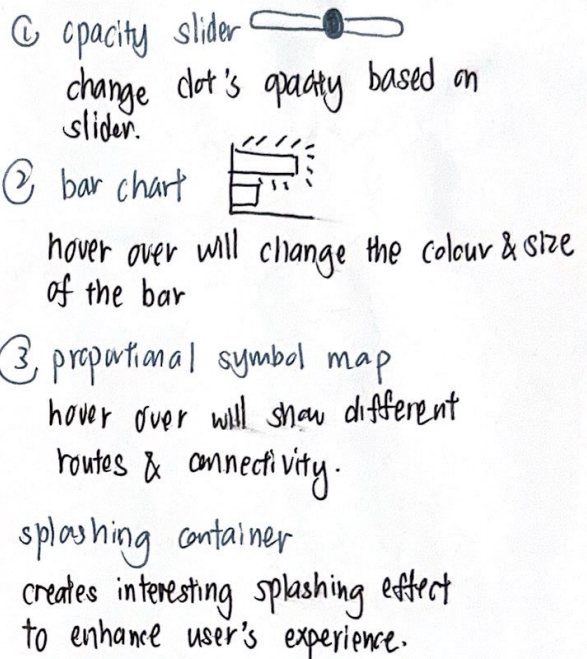 ① opacity slider
change dot's opacity based on
slider.
② bar chart
hover over will change the colour & size
of the bar
③ proportional symbol map
hover over will show different
routes & connectivity.
splashing container
creates interesting splashing effect
to enhance user's experience.